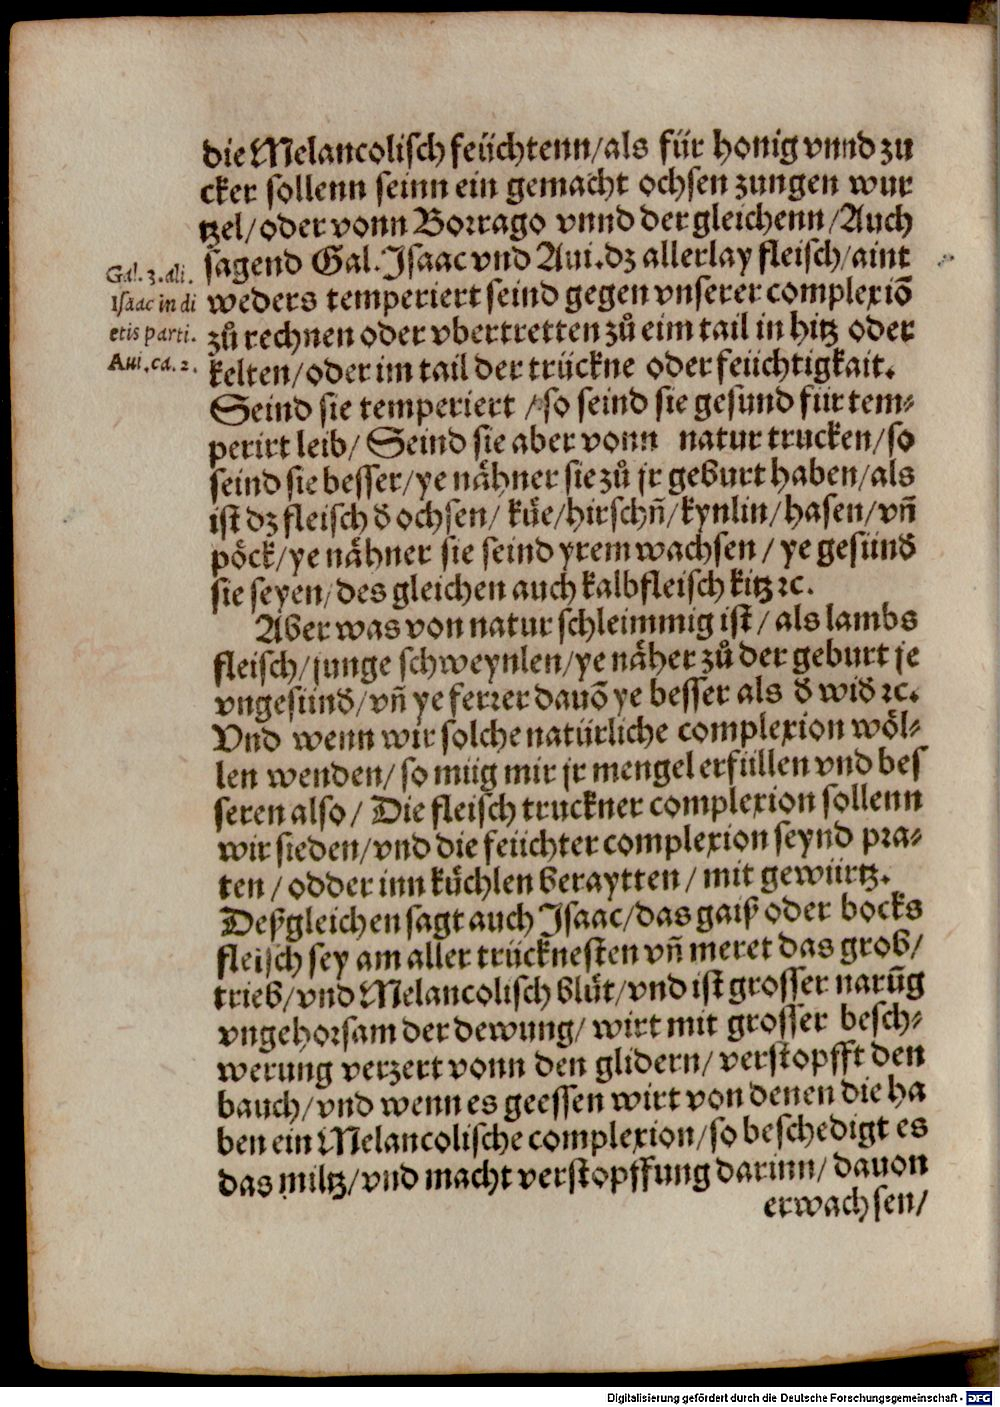 die Melancolisch feüchtenn/als für honig vnnd zu
cker sollenn seinn ein gemacht ochsen zungen wur
tzel/oder vonn Borrago vnnd der gleichenn/Auch
sagend Gal. Isaac vnd Aui. dz allerlay fleisch/aint
weders temperiert seind gegen vnserer complexiō
zů rechnen oder vbertretten zů eim tail in hitz oder
kelten/oder im tail der trückne oder feüchtigkait.
Seind sie temperiert /so seind sie gesund für tem⸗
perirt leib/ Seind sie aber vonn natur trucken/so
seind sie besser/ye nåhner sie zů jr geburt haben/als
ist dz fleisch đ ochsen/ kůe/hirschñ/kynlin/hasen/vñ
pöck/ye nåhner sie seind yrem wachsen/ ye gesünd
sie seyen/des gleichen auch kalbfleisch kitz ꝛc.
Aber was von natur schleimmig ist/ als lambs
fleisch/junge schweynlen/ye nåher zů der geburt je
vngesünd/vñ ye ferrer dauō ye besser als đ wid ꝛc.
Vnd wenn wir solche natürliche complexion wöl⸗
len wenden/ so müg mir jr mengel erfüllen vnd bes
seren also/ Die fleisch truckner complexion sollenn
wir sieden/vnd die feüchter complexion seynd pra⸗
ten/ odder inn kůchlen beraytten/ mit gewürtz.
Deßgleichen sagt auch Isaac/das gaiß oder bocks
fleisch sey am aller trücknesten vñ meret das grob/
trieb/vnd Melancolisch blůt/vnd ist grosser narūg
vngehorsam der dewung/ wirt mit grosser besch⸗
werung verzert vonn den glidern/ verstopfft den
bauch/vnd wenn es geessen wirt von denen die ha
ben ein Melancolische complexion/so beschedigt es
das miltz/vnd macht verstopffung darinn/ dauon
erwachsen/
Gal. 3. ali.
Isaac in di
etis parti.
Aui. ca. 2.
Digitalisierung gefördert durch die Deutsche Forschungsgemeinschaft - DFG